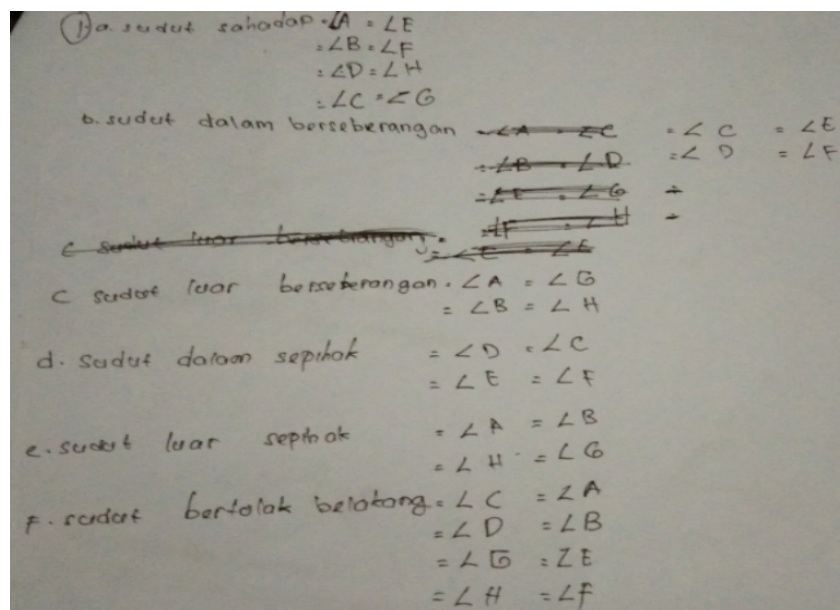 1) a. sudut sahadap = ∠A = ∠E
= ∠B = ∠F
= ∠D = ∠H
= ∠C = ∠G
b. sudut dalam berseberangan = ∠A = ∠C = ∠C = ∠E
= ∠B = ∠D = ∠D = ∠F
= ∠E = ∠G =
= ∠F = ∠H =
c sudut luar berseberangan = = ∠C = ∠E
c sudut luar berseberangan = ∠A = ∠G
= ∠B = ∠H
d. sudut dalam sepihak = ∠D = ∠C
= ∠E = ∠F
e. sudut luar sepihak = ∠A = ∠B
= ∠H = ∠G
F. sudut bertolak belakang = ∠C = ∠A
= ∠D = ∠B
= ∠G = ∠E
= ∠H = ∠F